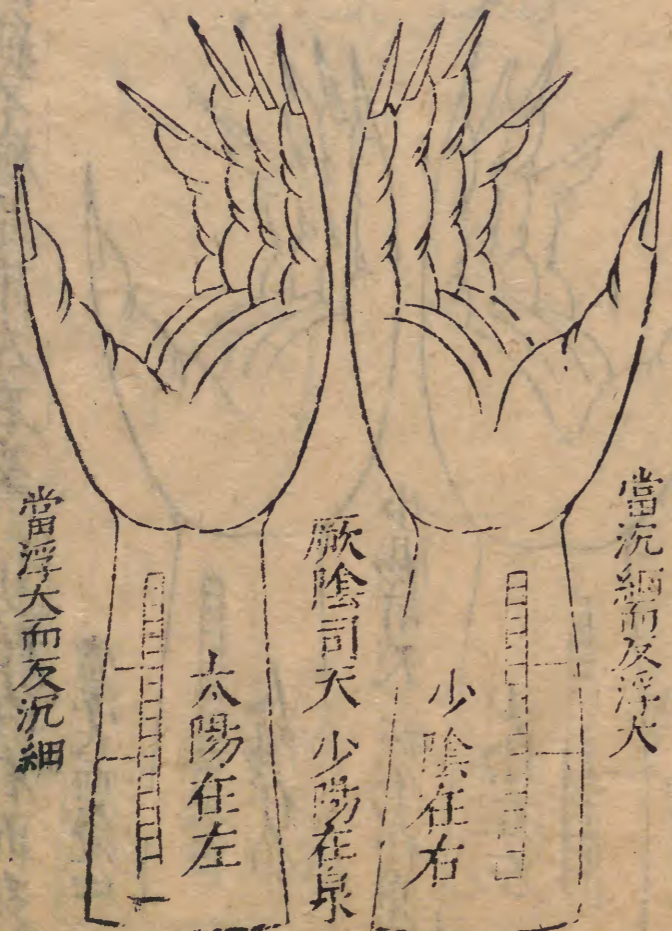 當沉細而反浮大
少陰在右
厥陰司天 少陽在泉
太陽在左
當浮大而反沉細